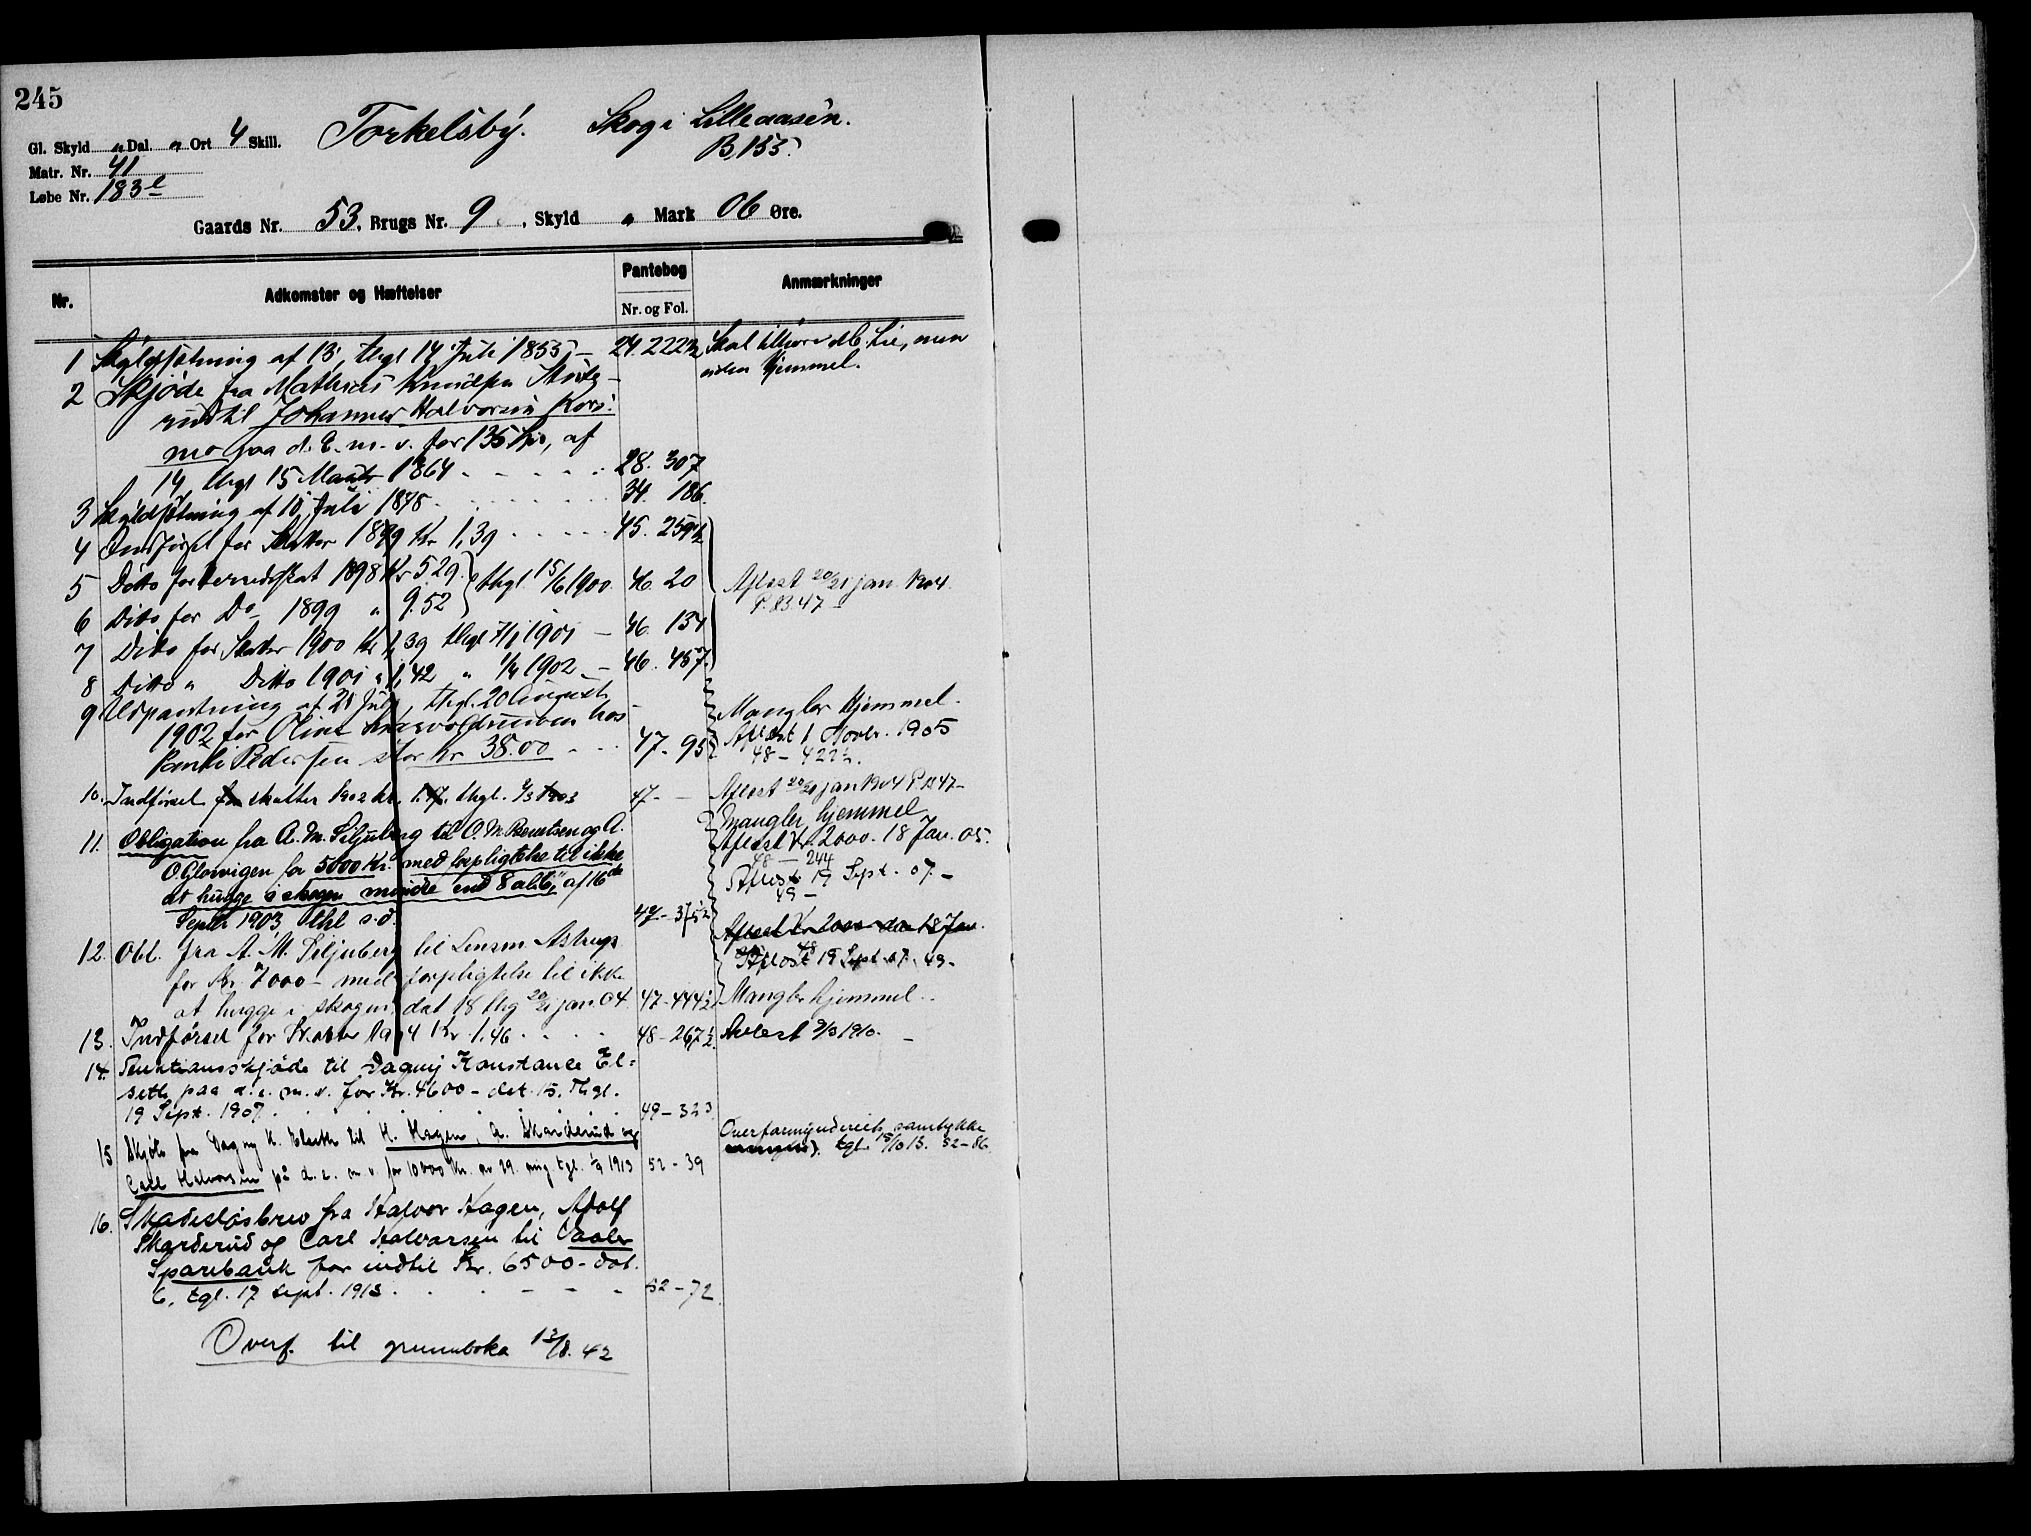 245
Gl. Skyld „ Dal. „ Ort 4 Skill. Torkelsby. Skog i Lilleaasen.
B. 155.
Matr. Nr. 41
Løbe Nr. 183 e
Gaards Nr. 53, Brugs Nr. 9, Skyld „ Mark 06 Øre.
Nr. Adkomster og Hæftelser Pantebog Anmærkninger
Nr. og Fol.
1 Skyldsætning af 13, thgl 14 Juli 1855 — 24. 222½ Skal tilhøre Lie, men
uden Hjemmel.
2 Skjøde fra Mathias Knudsen
rud til Johannes Halvorsen Kors:
mo paa d. E. m. v. for 135 , af
14, thgl 15 Marts 1864 28. 307
3 Skyldsætning af 10 Juli 1878 34. 186.
4 Indførsel for Skatter 1899 Kr 1,39 45. 259½
5 Ditto for Herredsskat 1898 Kr 5.29 thgl. 15/6 1900. 46. 20 Aflæst 20/21 jan. 1904.
P. B. 47 —
6 Ditto for Do 1899 „ 9.52
7 Ditto for Skatter 1900 Kr 1,39 thgl 7/1 1901 — 46. 134
8 Ditto „ Ditto 1901 „ 1,42 „ 1902 — 46. 457.
9 Udpantning af 21 Juli, thgl. 20 August Mangler Hjemmel.
1902 for Oline hos Aflæst 1 Novbr. 1905
Pedersen stor Kr. 38.00 47. 95 48 — 422½.
10. Indførsel for skatter 1902 Kr. 1.47. thgl. 1903 47 — Aflæst 20/21 jan 1904 P. B 47 —
11. Obligation fra A. M. Siljuberg til O. M. Berntsen og A. Mangler hjemmel
O. Glorvigen for 5000 Kr. med forpligtelse til ikke Aflæst Kr. 2000. 18 Jan. 05.
48 — 244
at hugge i skogen mindre end 8 al. 6", af 16de Aflæst 19 Sept. 07. —
49 —
Septbr 1903 thgl s. d. 47 — 375½
Aflæst Kr 2000 den 18 Jan.
12. Obl. fra A. M. Siljuberg til Lensm. Astrup 48
Aflæst 19 Sept. 07. 49 —
for Kr. 7000 — med forpligtelse til ikke
at hugge i skogen, dat 18 thg 20/21 jan. 04. 47 — 444½ Mangler hjemmel.
13. Indførsel for Skatter 1904 Kr. 1.46 48 — 267½ Avlæst 9/3 1910. —
14. Auktionsskjøde til Dagny Konstance El=
seth paa d. e. m. v. for Kr. 4600 — dat. 15. Thgl.
19 Sept. 1907. 49 — 323
15 Skjøte fra Dagny K. Elseth til H. Hagen, A. Skarderud og Overformynderiets samtykke
Carl Halvorsen på d. e. m v. for 10000 Kr. av 29. aug tgl. 1/9 1913 52 — 39 tgl. 15/10 13. 52 — 86
16. Skadesløsbrev fra Halvor Hagen, Adolf
Skarderud og Carl Halvorsen til Vaaler
Sparebank for indtil Kr. 6500 — dat.
6, tgl. 17 sept. 1913. 52 — 72
Overf. til grunnboka 13/8. 42